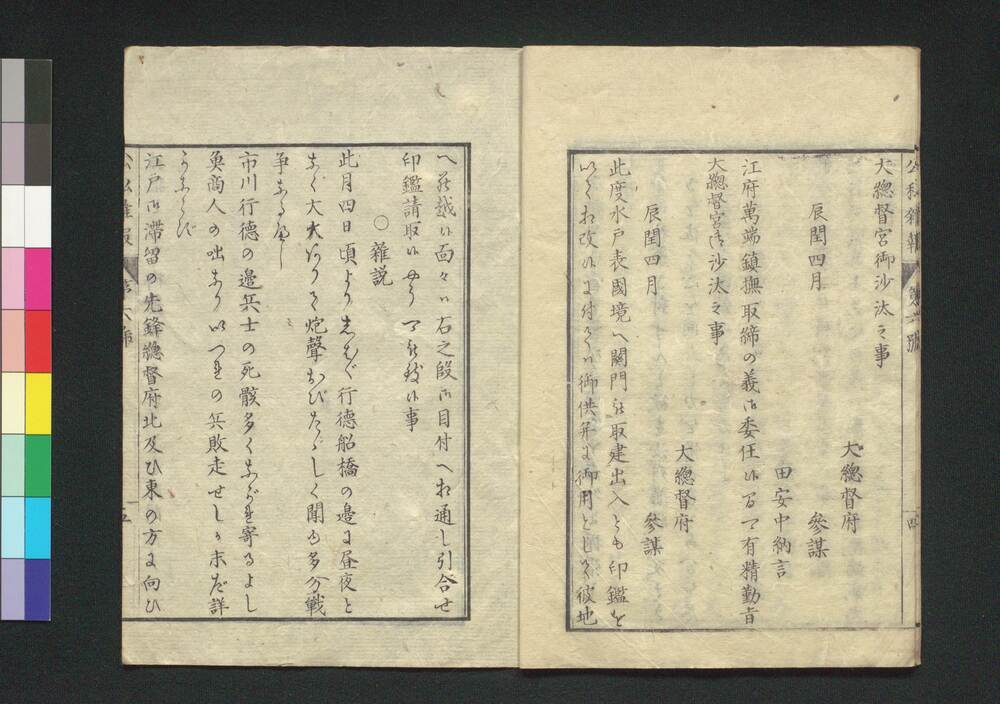 公私雜報
第六號
四
大總督宮御沙汰之事
大總督府
辰閏四月
參謀
田安中納言
江府萬端鎮撫取締の義御委任候間可有精勤旨
大總督宮御沙汰之事
大總督府
辰閏四月
參謀
此度水戸表國境へ關門被取建出入とも印鑑を
以て相改候に付ては御供并に御用として彼地
へ罷越候面々は右之段御目付へ相通し引合せ
印鑑請取候やう可被致候事
○雜説
此月四日頃より
行德船橋の邊に晝夜と
大
炮聲おびたゞしく聞ゆ多分戰
争あるべし
市川行德の邊兵士の死骸多くながれ寄るよし
奥商人の咄あり いづれの兵敗走せしか未だ詳
ならず
江戸御滯留の先鋒總督府北及ひ東の方に向ひ
公私雜報
第六號
五